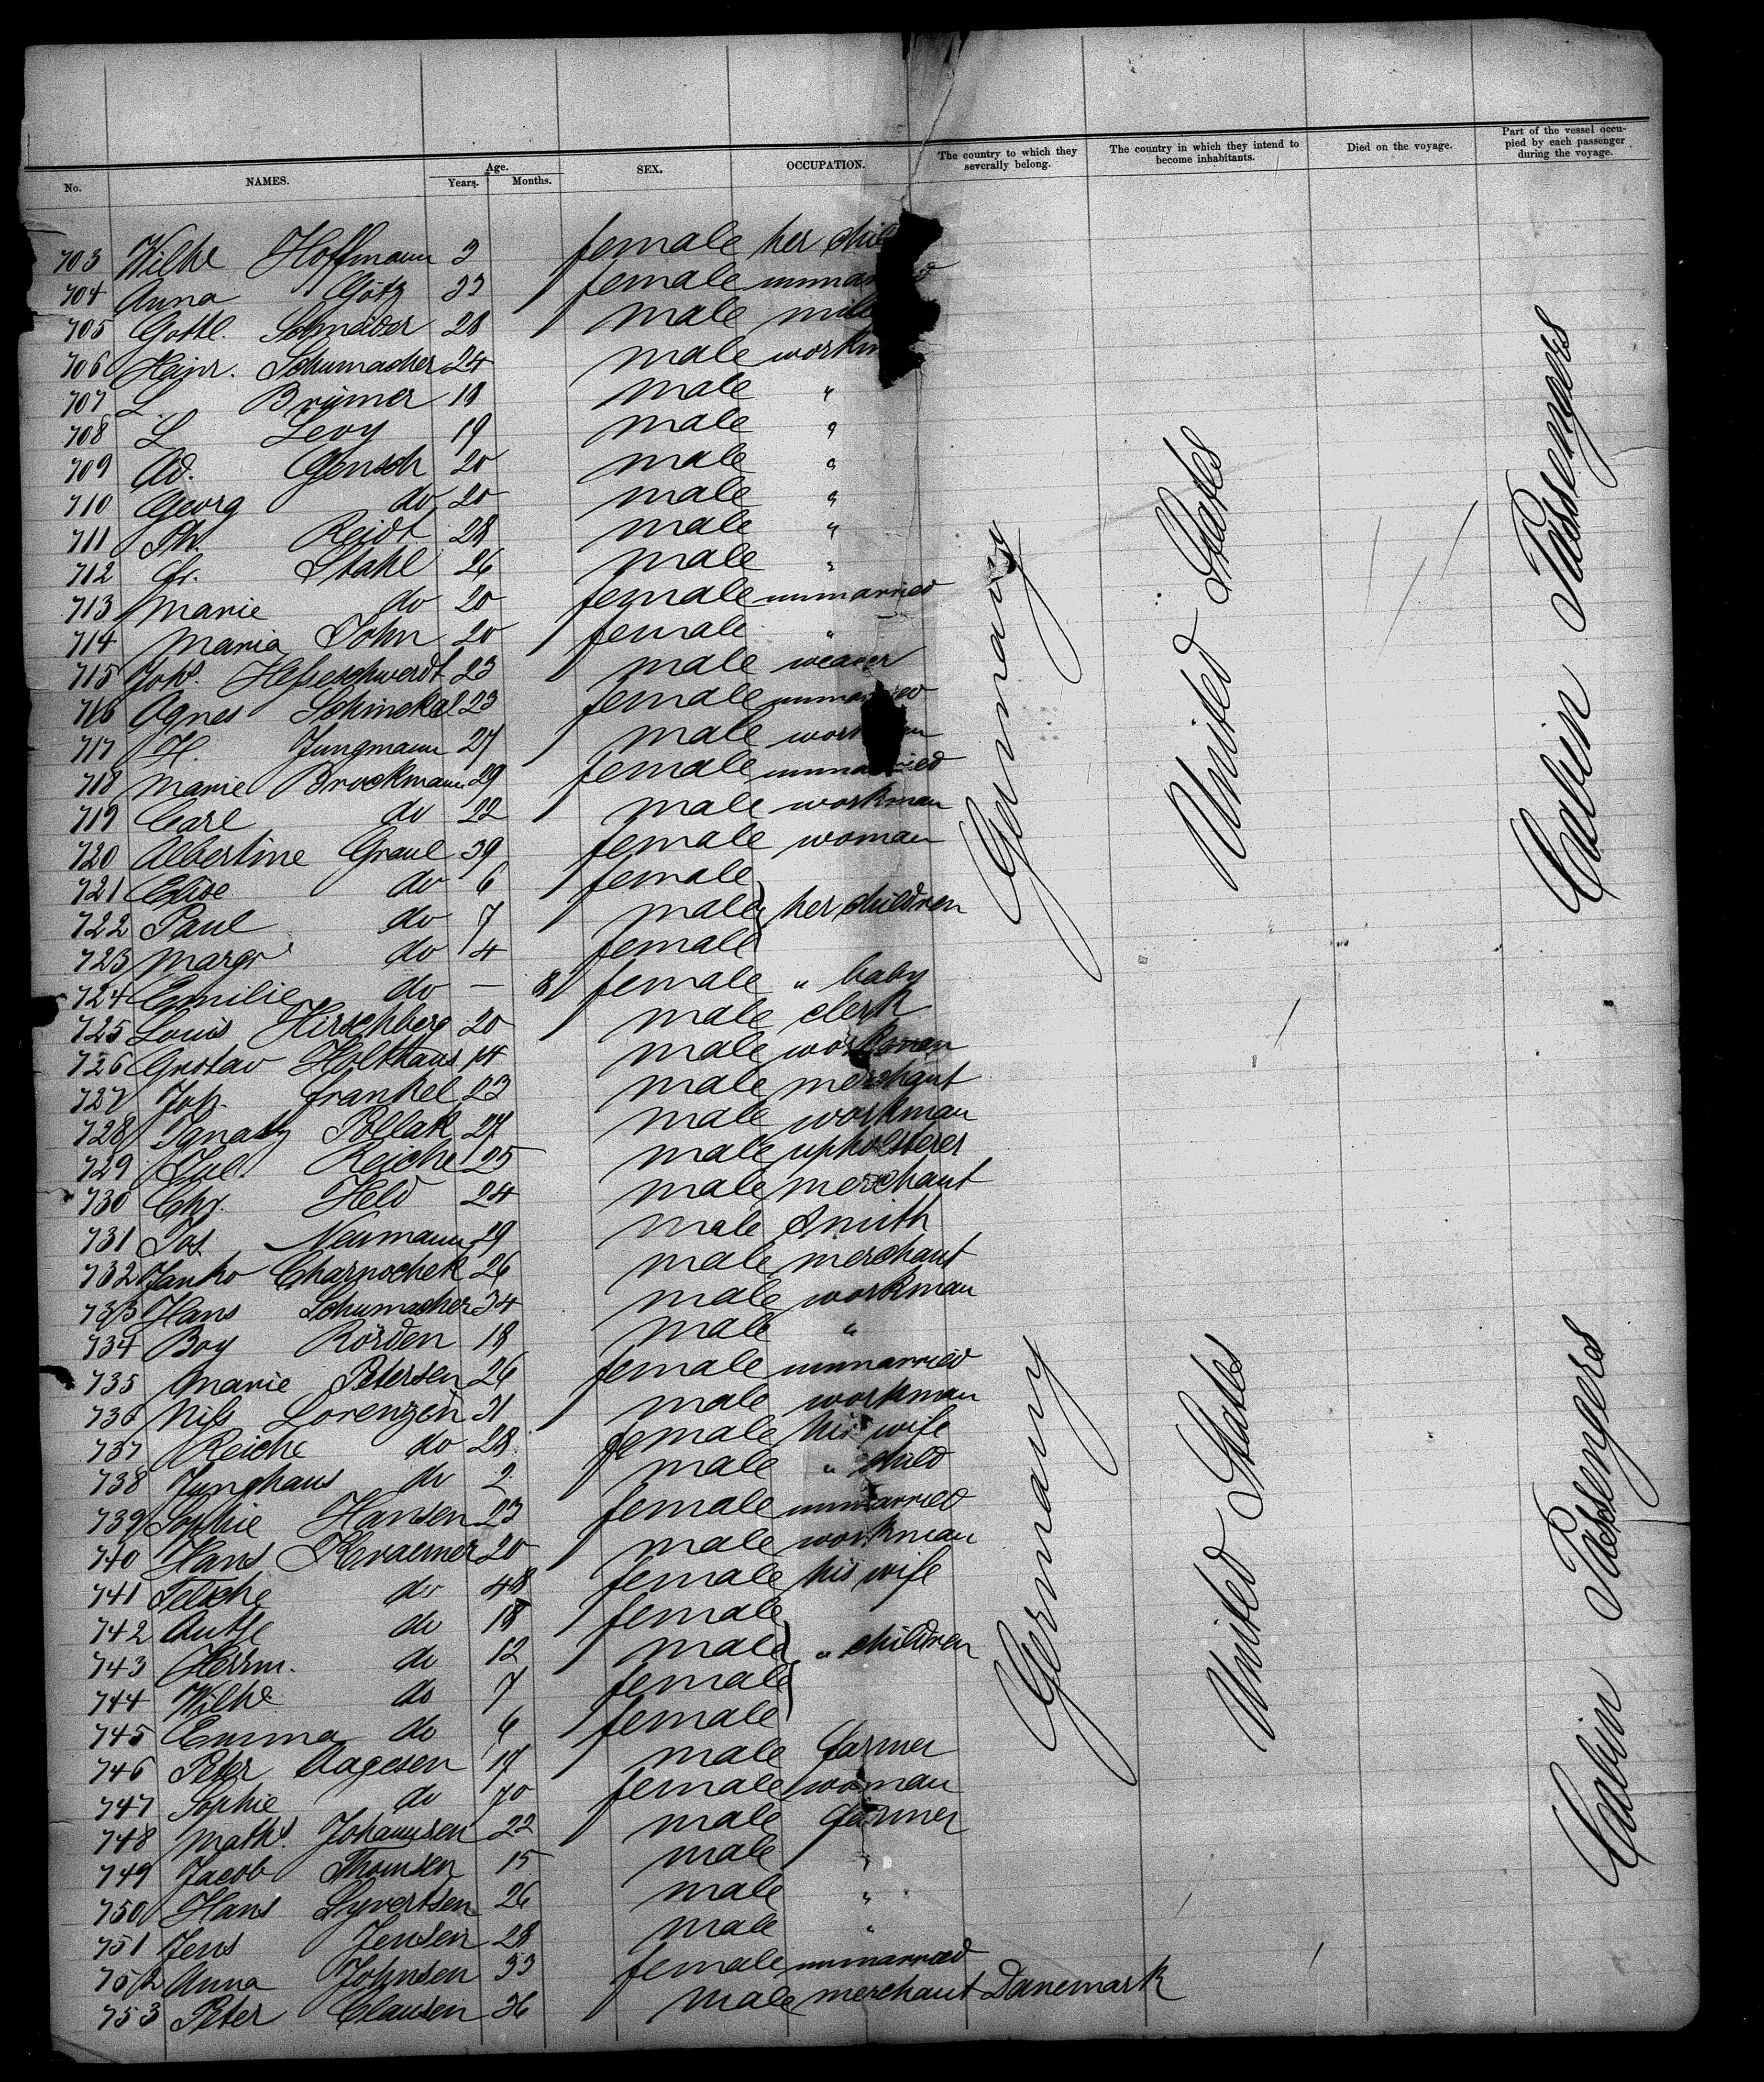 No. NAMES. Age. Years. Months. SEX. OCCUPATION. The country to which they severally belong. The country in which they intend to become inhabitants. Died on the voyage. Part of the vessel occupied by each passenger during the voyage.
703 Wilhe Hoffmann 3 female her chil
704 Anna Götz 23 female unmarried
705 Gottl. Schnader 28 male mill
706 Heinr. Schumacher 24 male workm
707 L. Brümer 18 male "
708 L Levy 19 male "
709 Ad. Gensch 20 male "
710 Georg do 20 male "
711 Ph. Reidt 28 male "
712 Fr. Stahl 26 male "
713 Marie do 20 female unmarried
714 Maria John 20 female "
715 Joh. Hefseschwerdt 23 male weaver
716 Agnes Schinckel 23 female unmarried
717 H. Jungmann 27 male workman
718 Marie Brockmann 29 female unmarried
719 Carl do 22 male workman
720 Albertine Graul 39 female woman
721 Elise do 6 female
722 Paul do 7 male } her children
723 Margr do 4 female
724 Emilie do — 8 female " baby
725 Louis Hirschberg 20 male clerk
726 Gustav Holthaus 14 male workman
727 Joh. Frankel 23 male merchant
728 Ignatz Pollak 27 male workman
729 Jul. Reiche 25 male upholsterer
730 Chr. Held 24 male merchant
731 Jos. Neumann 29 male Smith
732 Janko Charnochek 26 male merchant
733 Hans Schumacher 34 male workman
734 Boy Rörden 18 male "
735 Marie Petersen 26 female unmarried
736 Nifs Lorenzen 31 male workman
737 Reiche do 28 female his wife
738 Junghans do 2 male " child
739 Sophie Hansen 23 female unmarried
740 Hans Kraemer 20 male workman
741 Telsche do 48 female his wife
742 Antje do 18 female
743 Herrm. do 12 male } " children
744 Wilhe do 7 female
745 Emma do 6 female
746 Peter Aagesen 17 male farmer
747 Sophie do 70 female woman
748 Maths. Johannsen 22 male farmer
749 Jacob Thomsen 15 male "
750 Hans Syvertsen 26 male "
751 Jens Jensen 28 male "
752 Anna Johnsen 33 female unmarried
753 Peter Clausen 36 male merchant Danemark
Germany United States Cabin Passengers
Germany United States Cabin Passengers